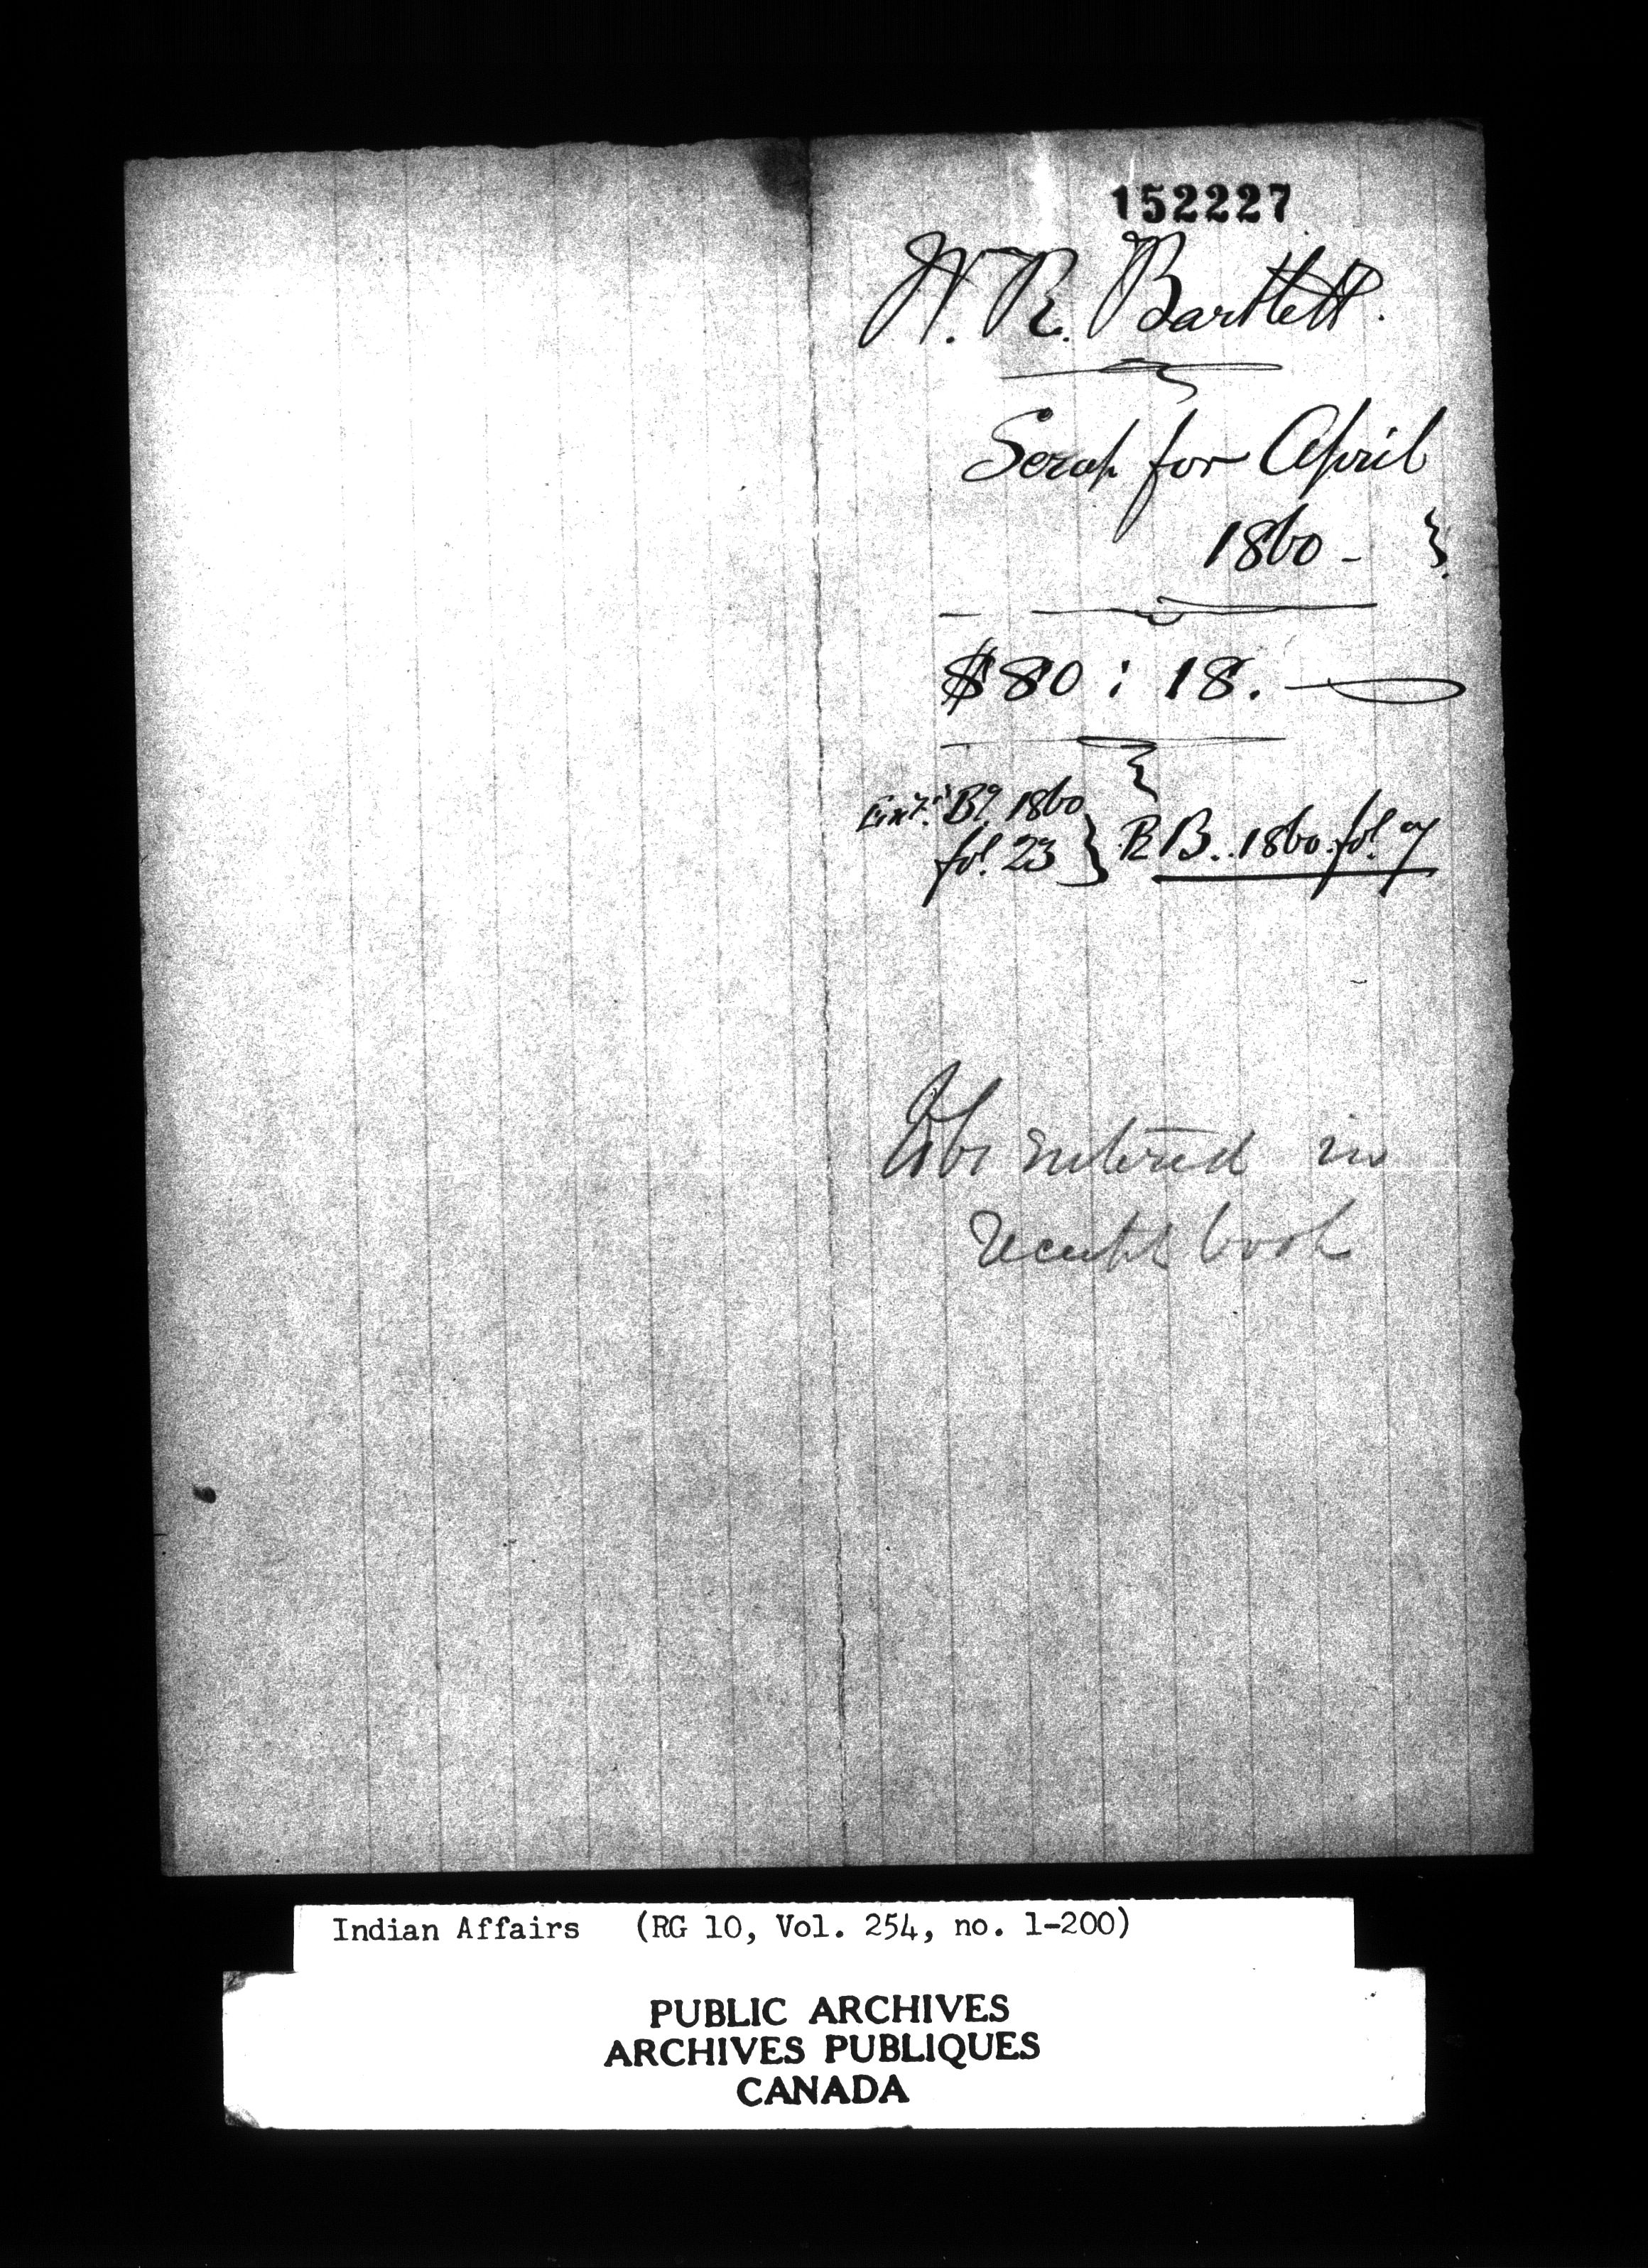 152227
W. R. Bartlett.
Scrap for April
1860 -
$80 : 18.
Bk. 1860
fol. 23 } R B. 1860. fol. 7
entered in
book
Indian Affairs (RG 10, Vol. 254, no. 1-200)
PUBLIC ARCHIVES
ARCHIVES PUBLIQUES
CANADA